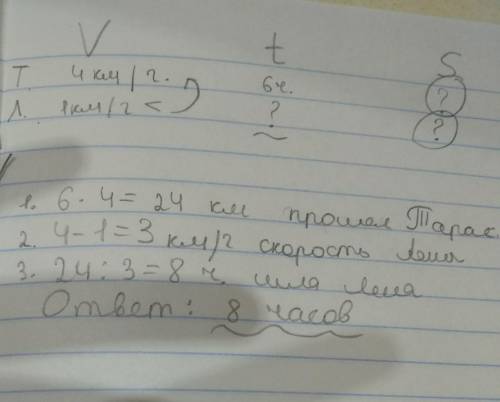 V t S
Т. 4 км/г. 6ч. ?
Л. 1км/г < ? ?
1. 6 · 4 = 24 км прошел Тарас
2. 4 - 1 = 3 км/г скорость Лены
3. 24 : 3 = 8 ч. шла Лена
Ответ: 8 часов